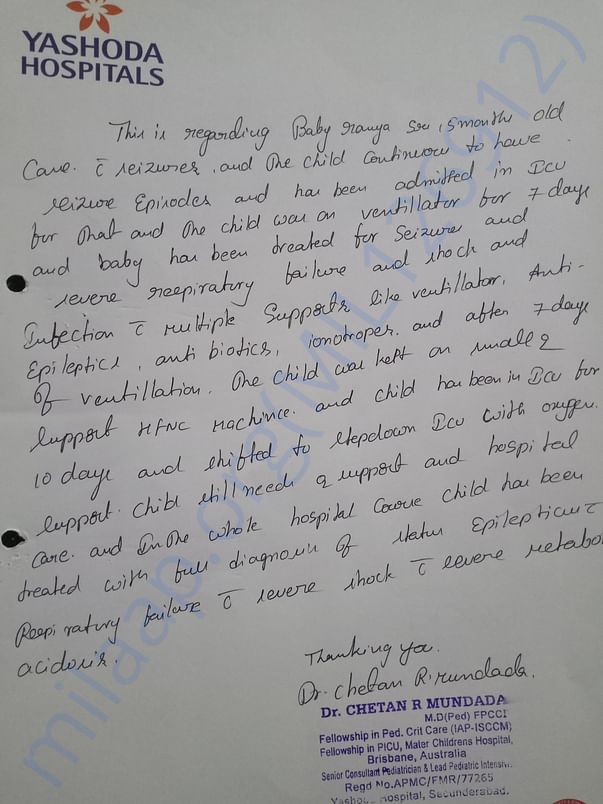 YASHODA
HOSPITALS
This is regarding Baby Sree, 5 months old
Case c̄ seizures, and the child continues to have
seizure Episodes and has been admitted in Icu
for that and the child was on ventillator for 7 days
and baby has been treated for Seizures and
severe respiratory failure and shock and
Infection c̄ multiple Supports like ventillator, Anti-
Epileptics, anti biotics, ionotropes. and after 7 days
Of ventillation. The child was kept on small
Support HFNC Machince. and child has been in Icu for
10 days and shifted to stepdown Icu with oxygen.
Support. Child still needs support and hospital
care. and In the whole hospital Course child has been
treated with full diagnosis of status Epilepticus c̄
Respiratury failure c̄ severe shock c̄ severe metabo
acidosis.
Thanking you.
Dr. Chetan R. Mundada.
Dr. CHETAN R MUNDADA
M.D(Ped) FPCCI
Fellowship in Ped. Crit Care (IAP-ISCCM)
Fellowship in PICU, Mater Childrens Hospital,
Brisbane, Australia
Senior Consultant Pediatrician & Lead Pediatric Intensiv
Regd No.APMC/FMR/77265
Yashoda Hospital, Secunderabad.
milaap.org(MIL1258912)